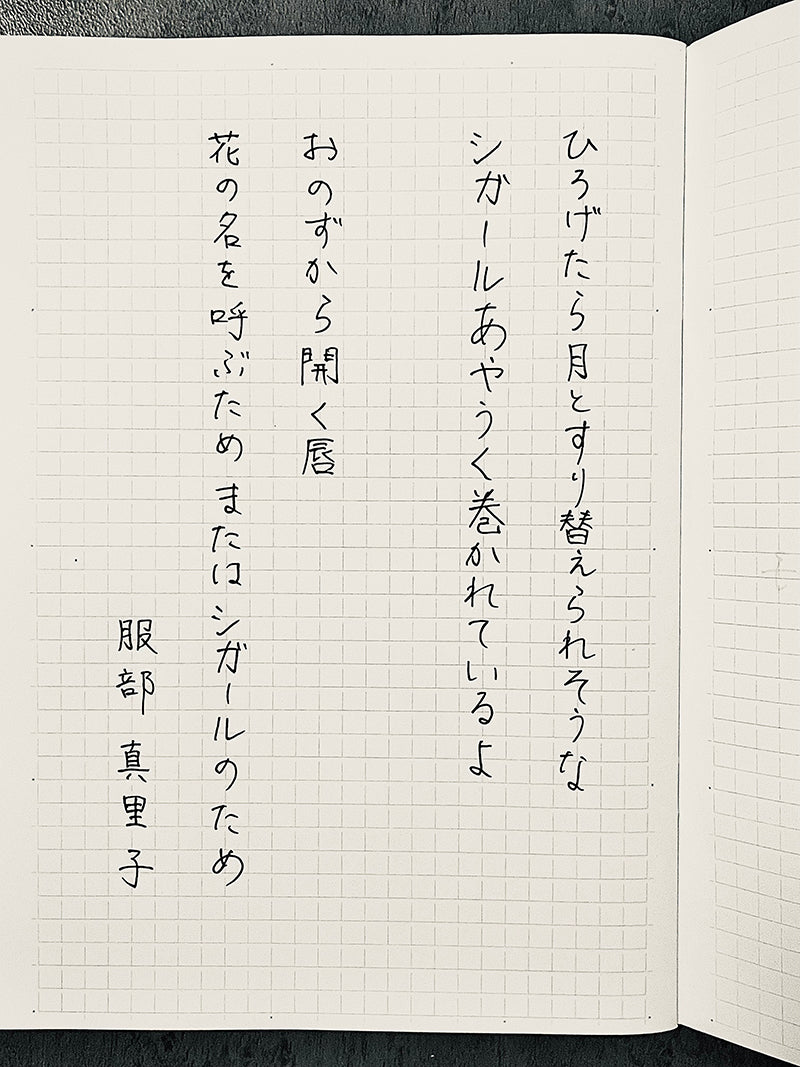 ひろげたら月とすり替えられそうな
シガールあやうく巻かれているよ
おのずから開く唇
花の名を呼ぶため またはシガールのため
服部 真里子